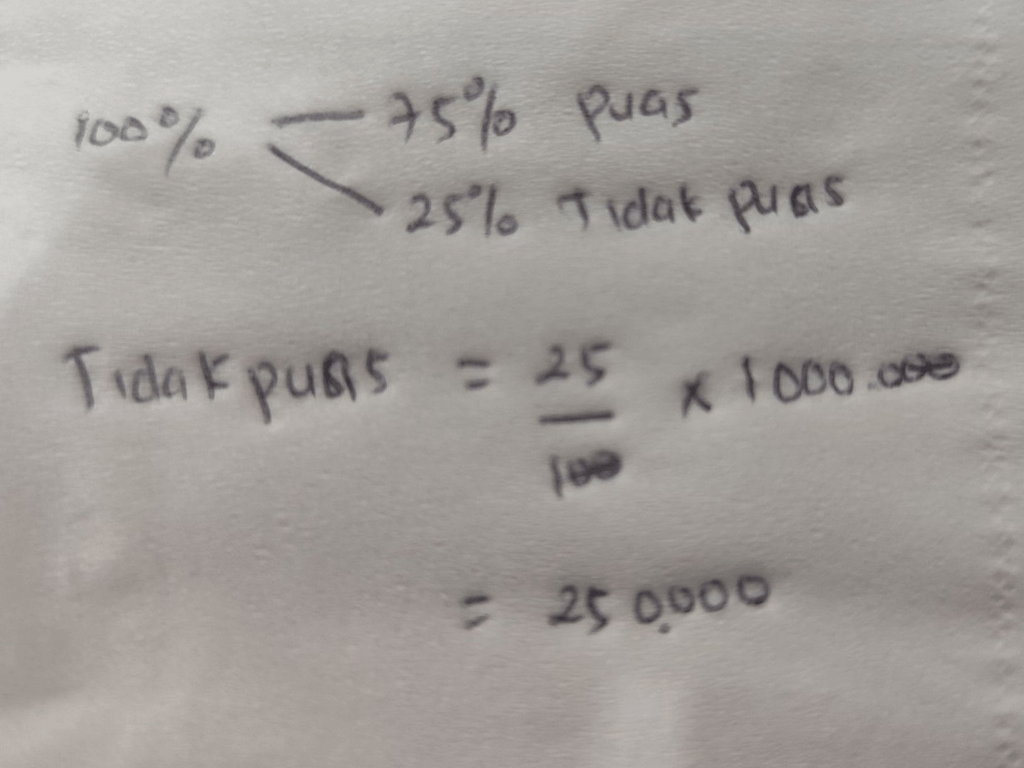 100% — 75% puas
25% Tidak puas
Tidak puas = 25/100 x 1000.000
= 250.000